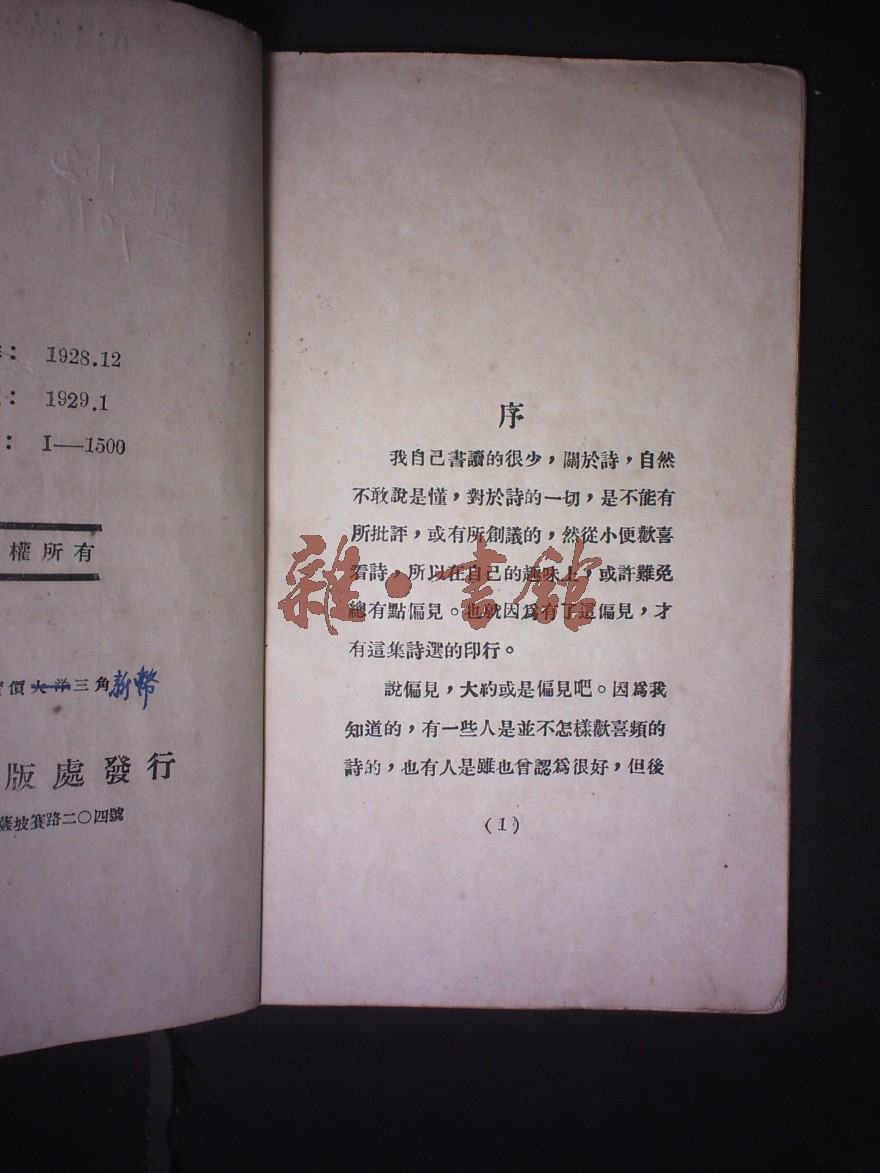 : 1928.12
: 1929.1
: I—1500
權所有
價大洋三角新幣
版處發行
薩坡賽路二〇四號
序
我自己書讀的很少，關於詩，自然
不敢說是懂，對於詩的一切，是不能有
所批評，或有所創議的，然從小便歡喜
看詩，所以在自己的趣味上，或許難免
總有點偏見。也就因爲有了這偏見，才
有這集詩選的印行。
說偏見，大約或是偏見吧。因爲我
知道的，有一些人是並不怎樣歡喜頻的
詩的，也有人是雖也曾認爲很好，但後
(1)
雜·書館